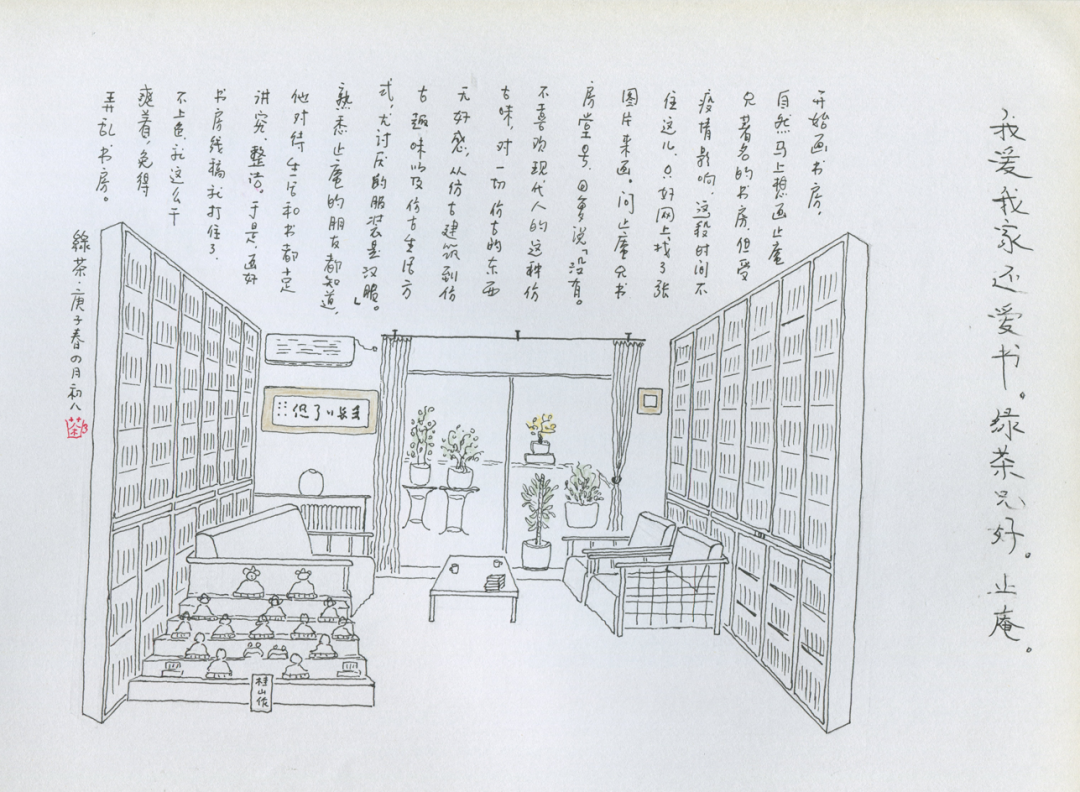 我爱我家还爱书。绿茶兄好。止庵。
开始画书房,
自然马上想画止庵
兄著名的书房,但受
疫情影响,这段时间不
住这儿,只好网上找了张
图片来画。问止庵兄书
房堂号,回复说「没有。
不喜欢现代人的这种仿
古味,对一切仿古的东西
无好感,从仿古建筑到仿
古趣味以及仿古生活方
式,尤讨厌的服装是汉服。」
熟悉止庵的朋友都知道,
他对待生活和书都十足
讲究、整洁。于是,画好
书房线稿就打住了,
不上色,就这么干
爽着,免得
弄乱书房。
綠茶·庚子春の月初八
茶
桂山作